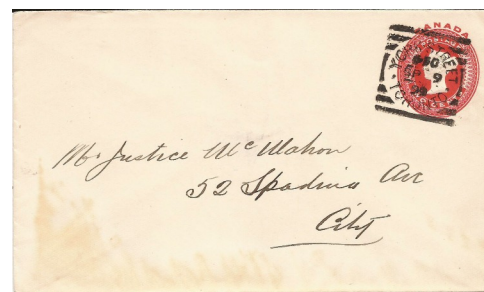 CANADA
YORK STREET
DEC
9
TORONTO
Mr Justice McMahon
52 Spadina Ave
City